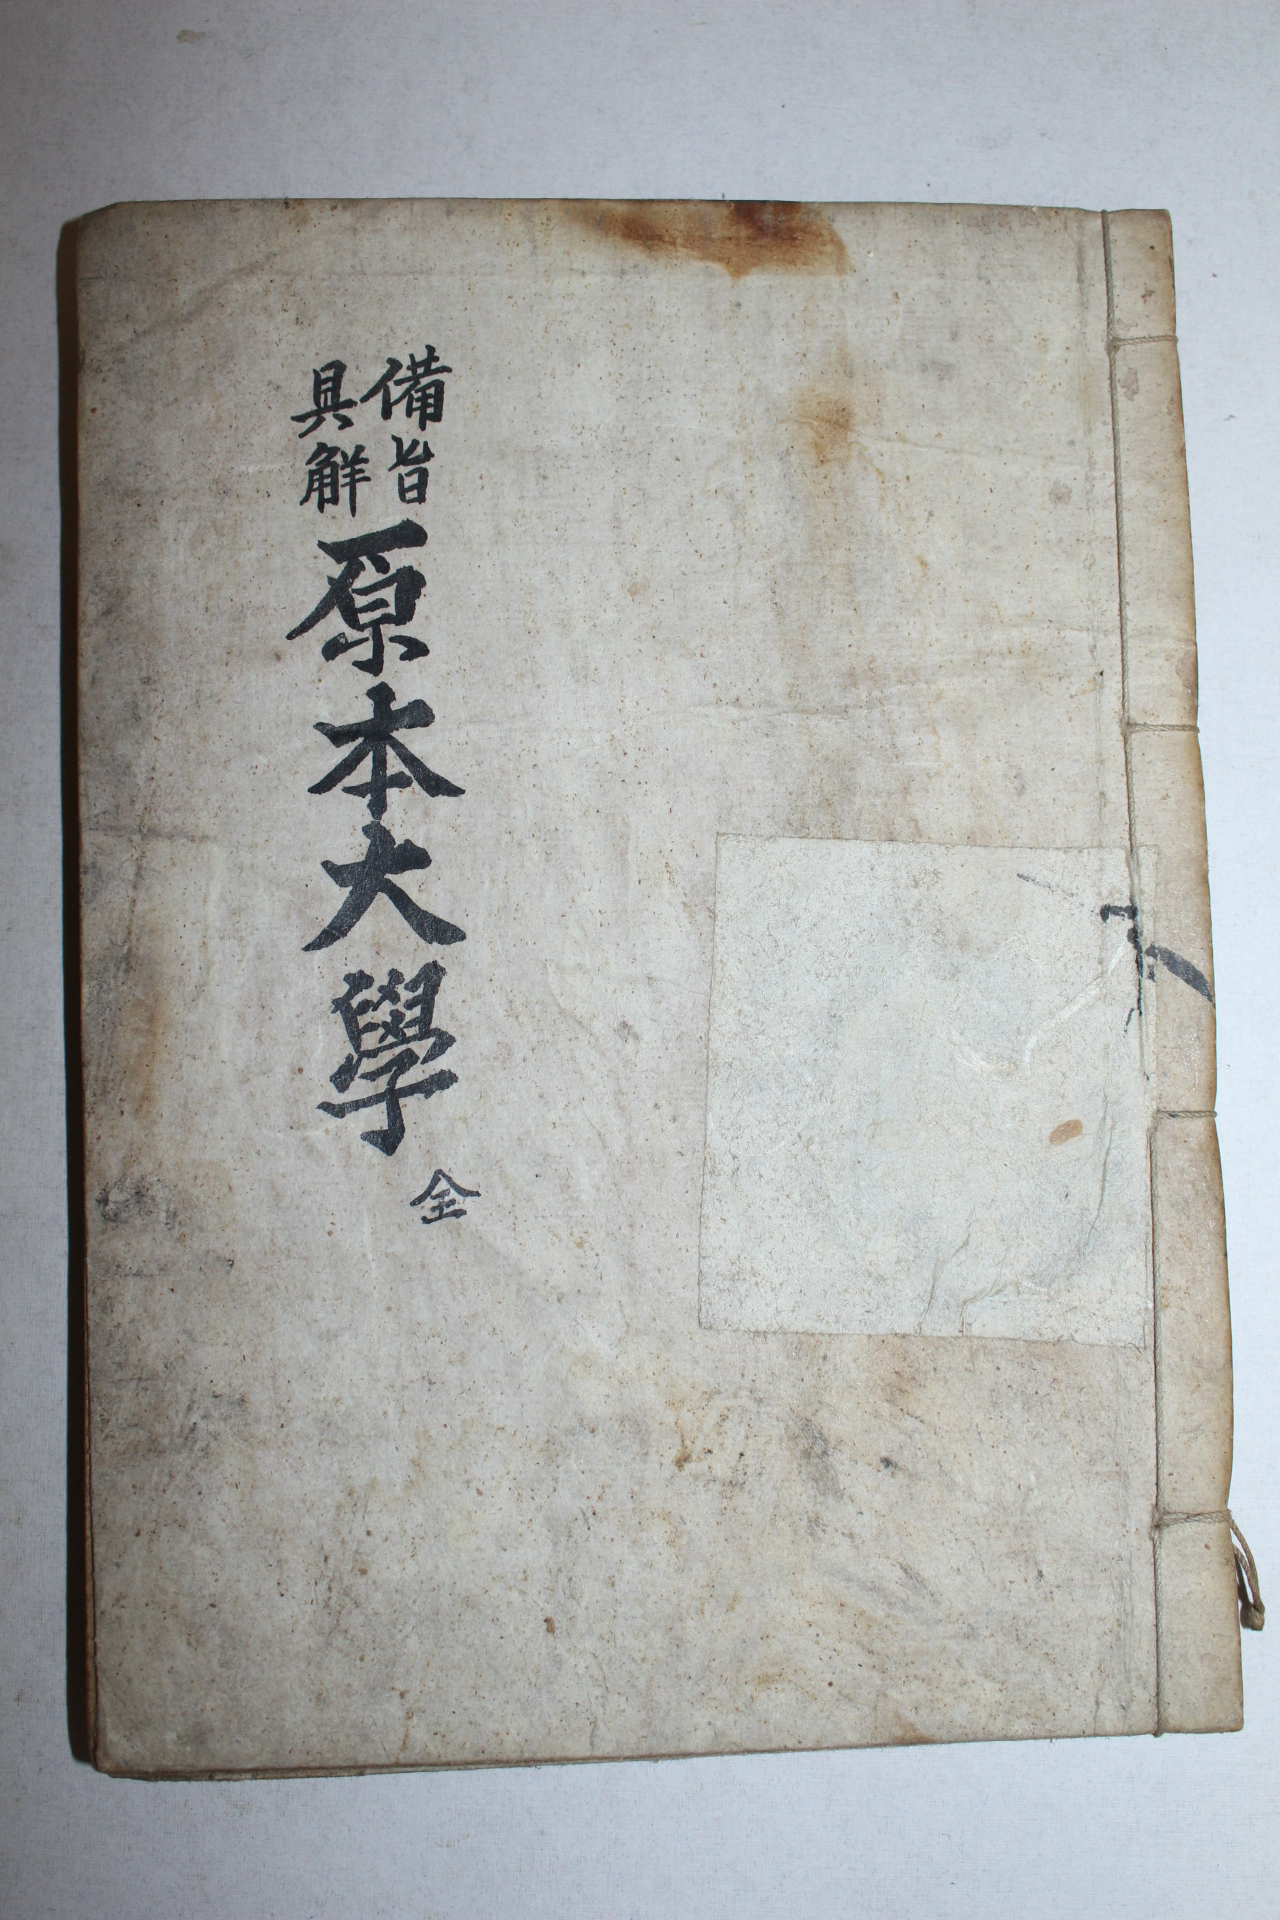 備旨
具觧
原本大學
全